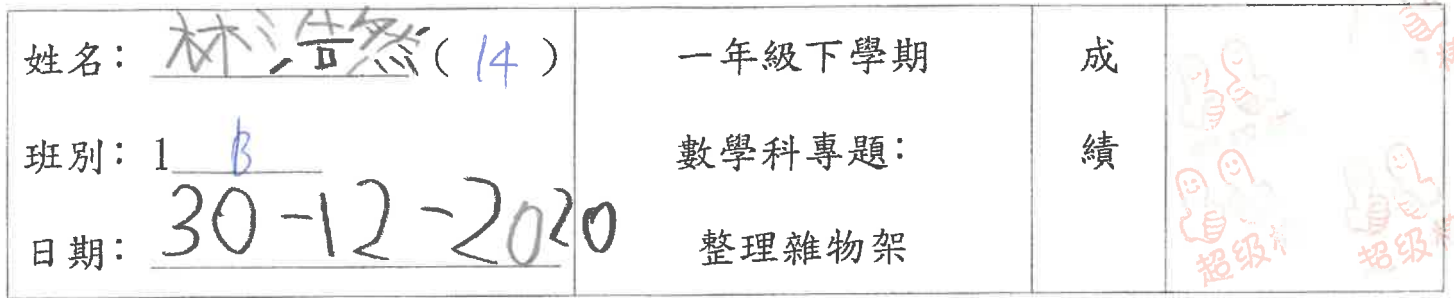 姓名：林浩然(14)
班別：1B
日期：30-12-2020
一年級下學期
數學科專題：
整理雜物架
成
績
超级
超级